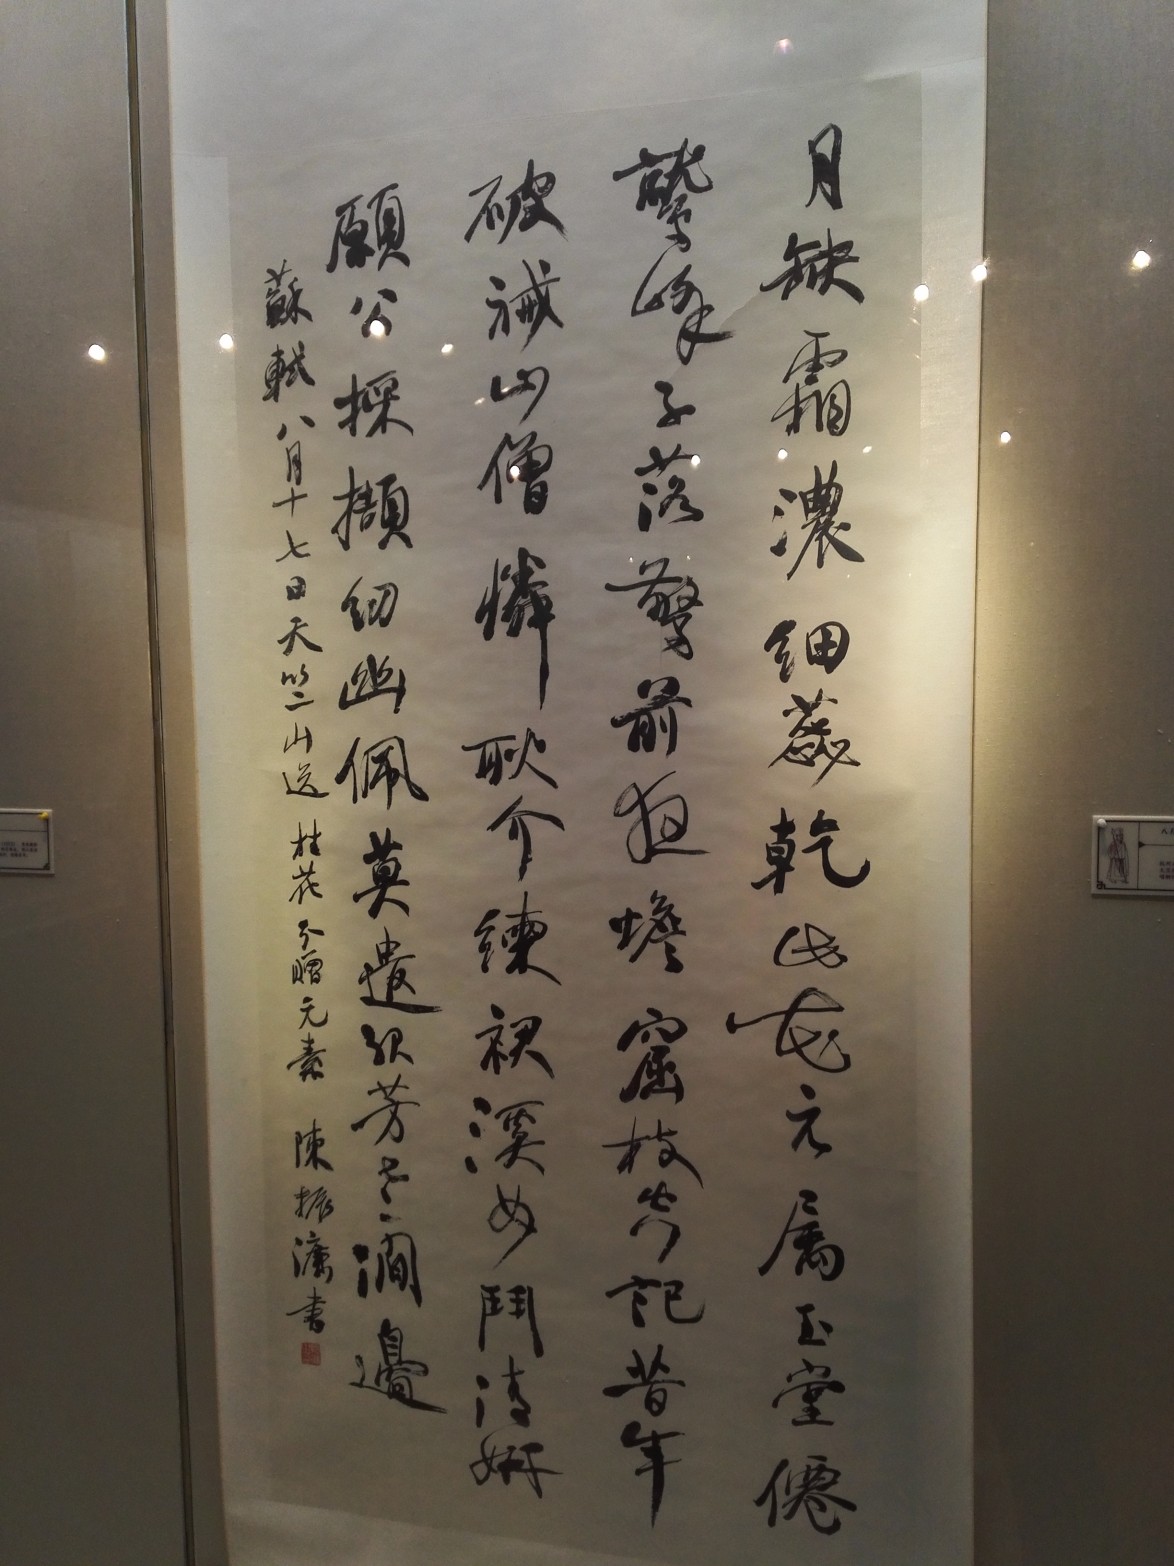 月缺霜濃細蕊乾此花元属玉堂僊
鷲峰子落驚前夜蟾窟枝空記昔年
破祴山僧憐耿介練裙溪女鬥清妍
願公採擷紉幽佩莫遣孤芳老澗邊
蘇軾八月十七日天竺山送桂花分贈元素 陳振濂書